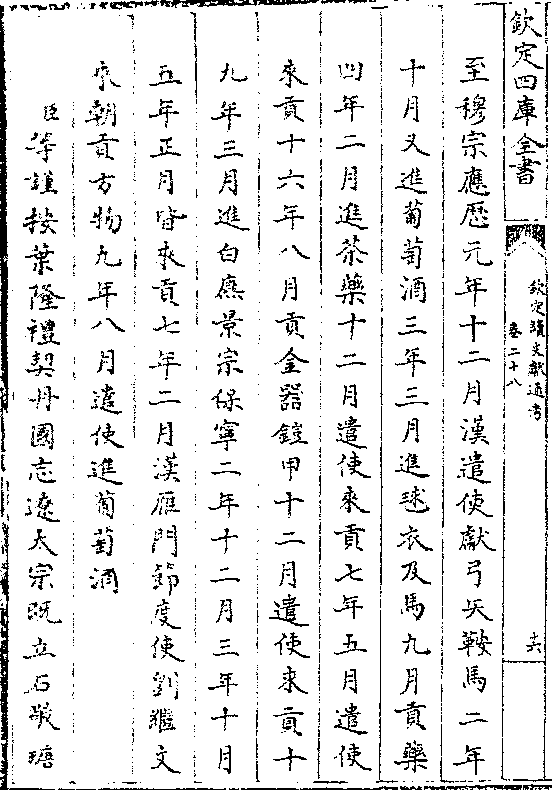 欽定四庫全書
欽定續文獻通考
卷二十八
十六
至穆宗應歷元年十二月漢遣使獻弓矢鞍馬二年
十月又進葡萄酒三年三月進球衣及馬九月貢藥
四年二月進茶藥十二月遣使來貢七年五月遣使
來貢十六年八月貢金器鎧甲十二月遣使來貢十
九年三月進白麃景宗保寧二年十二月三年十月
五年正月皆來貢七年二月漢雁門節度使劉繼文
來朝貢方物九年八月遣使進葡萄酒
臣等謹按葉隆禮契丹國志遼太宗既立石敬瑭